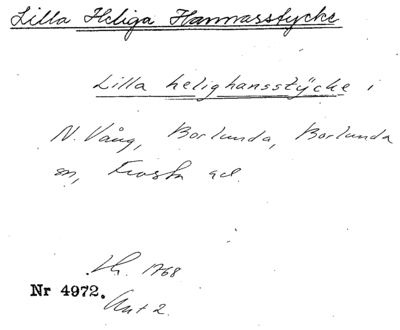 Lilla Heliga Hannasstycke
Lilla helighansstÿcke i
N. Vång, Borlunda, Borlunda
sn, Frosta hd.
Lh. 1768
Nr 4972.
Akt 2.